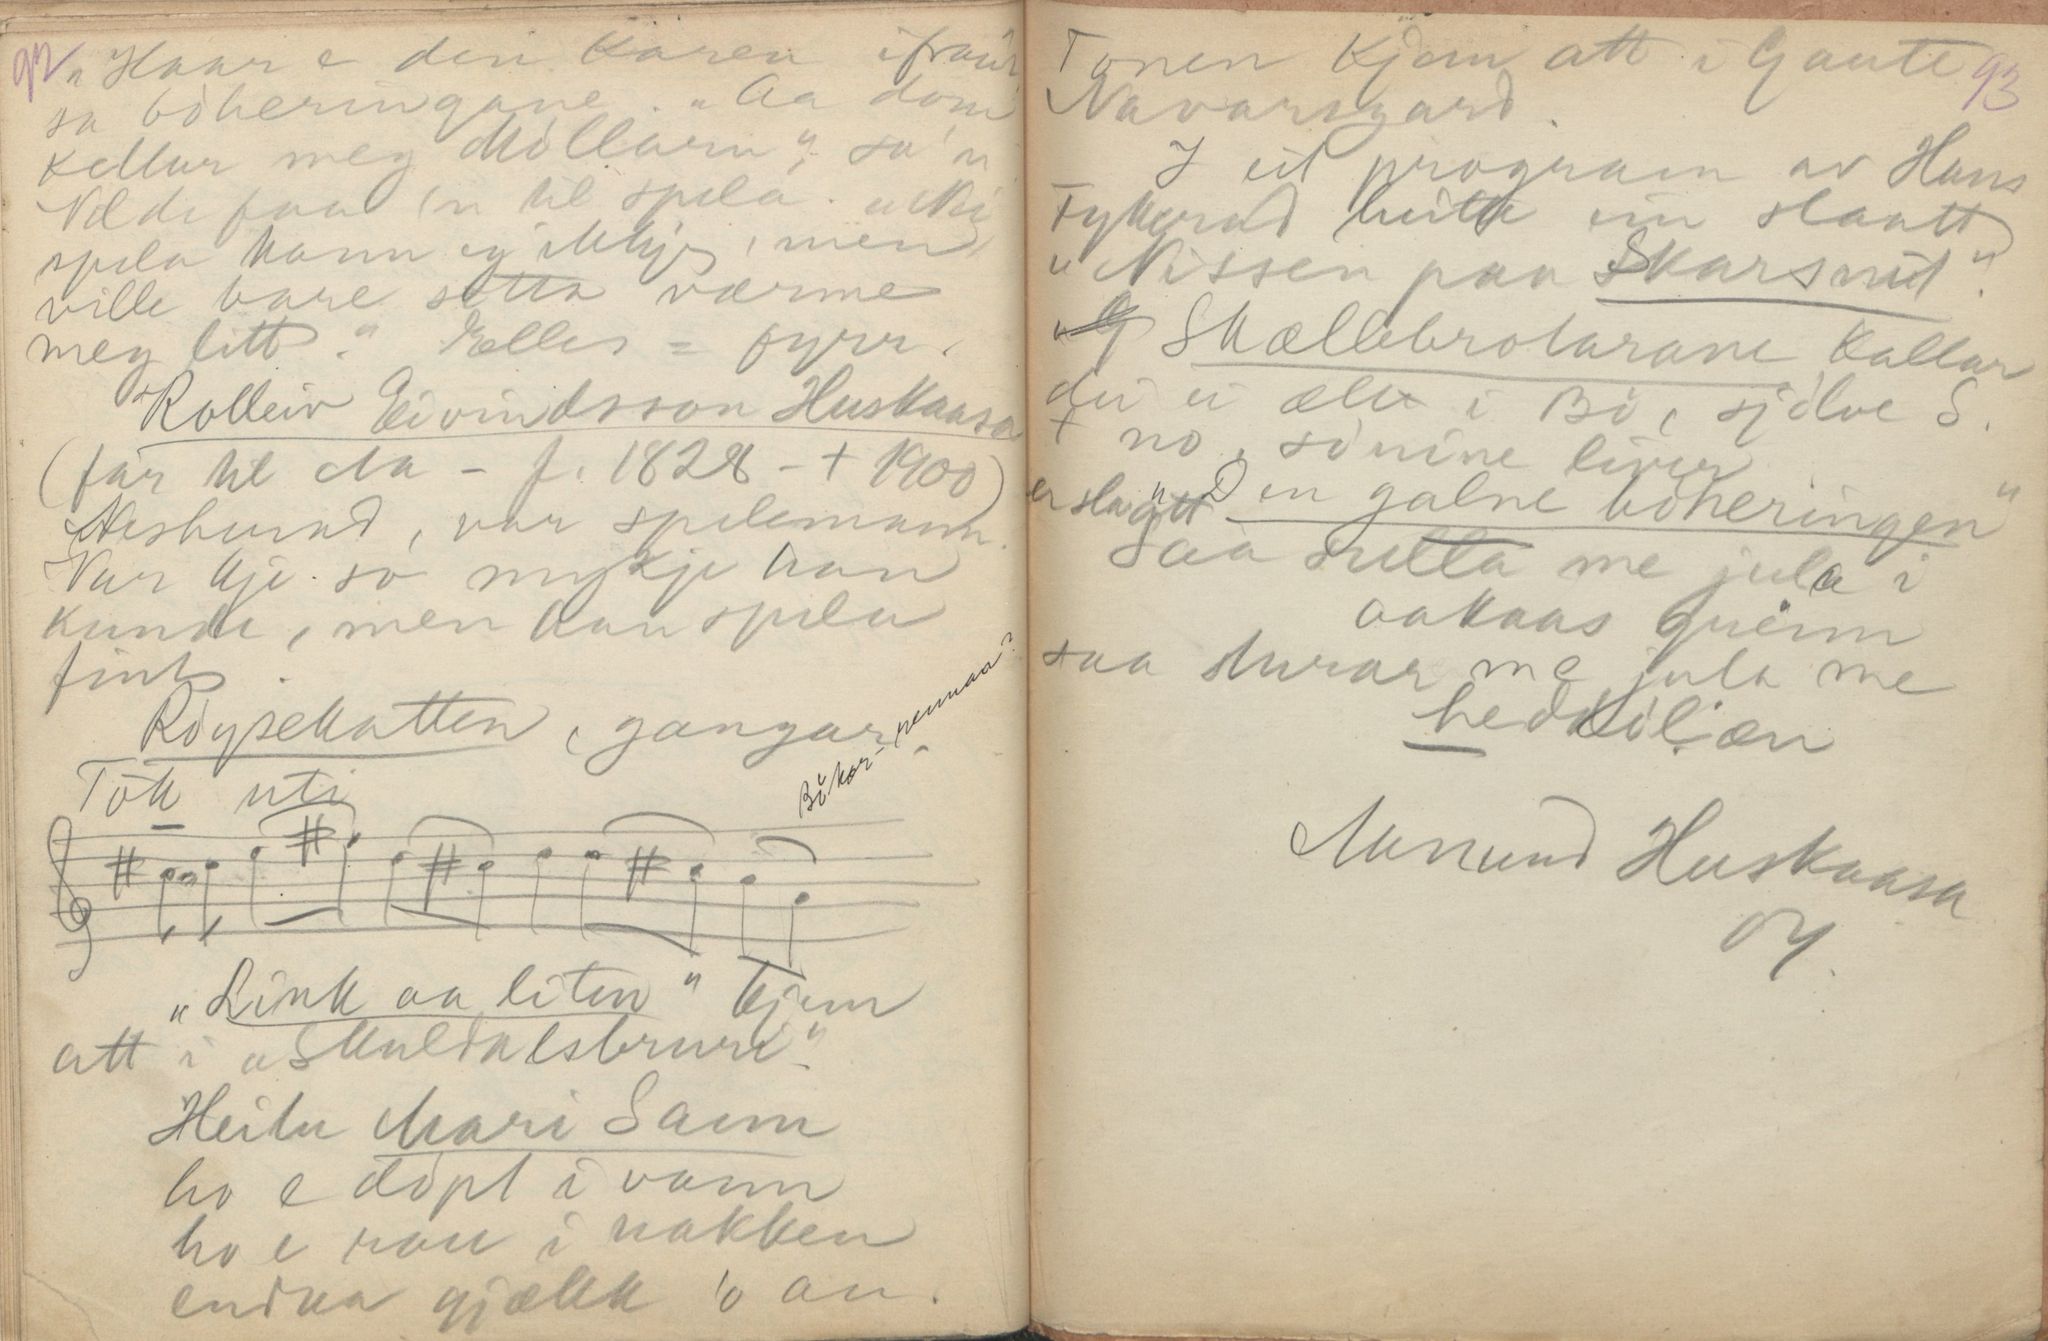 92
„Haar e den karen ifraa"
sa böheringane. „Aa dom
kallar meg Möllarn", sa 'n
Vilde faa 'n til spela. „Nei
spela kann eg ikkje, men
ville bare sitta værme
meg litt." Elles = fyrr.
Rolleiv Eivindsson Huskaasa
(far til Aa - f. 1828 - + 1900)
Neshurad, var spelemann.
Var kje so mykje han
kunde, men han spela
fint.
Röysekatten, gangar.
Bökar-nemnaa?
Tok uti
„Link aa liten" kjem
att i „Skuldalsbruri"
Heitu Mari Saum
ho e döpt i vann
ho e rau i nakken
endaa gjækk 'o an.
93
Tonen kjem att i Gaute
Navarsgard.
I eit program av Hans
Fykerud heitte ein slaatt
„Nissen paa Skarsnut".
Skællebrotarane kallar
dei ei ætt i Bö, sjölve S.
+ no, sönine liver
er slaatt „Den galne böheringen"
Saa sulla me jula i
aakaas grein
saa sturar me jula me
hedkiljæn
Aamund Huskaasa
04.